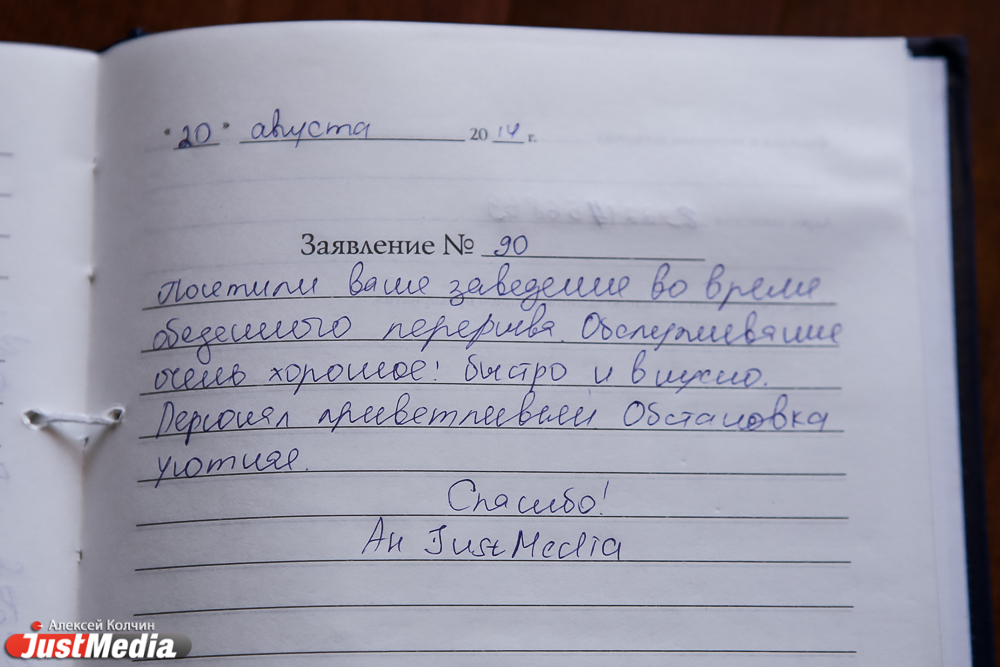 "20" августа 2014 г.
Заявление № 90
Посетили ваше заведение во время
обеденного перерыва. Обслуживание
очень хорошее: быстро и вкусно.
Персонал приветливый Обстановка
уютная.
Спасибо!
Аи JustMedia
Алексей Колчин
JustMedia